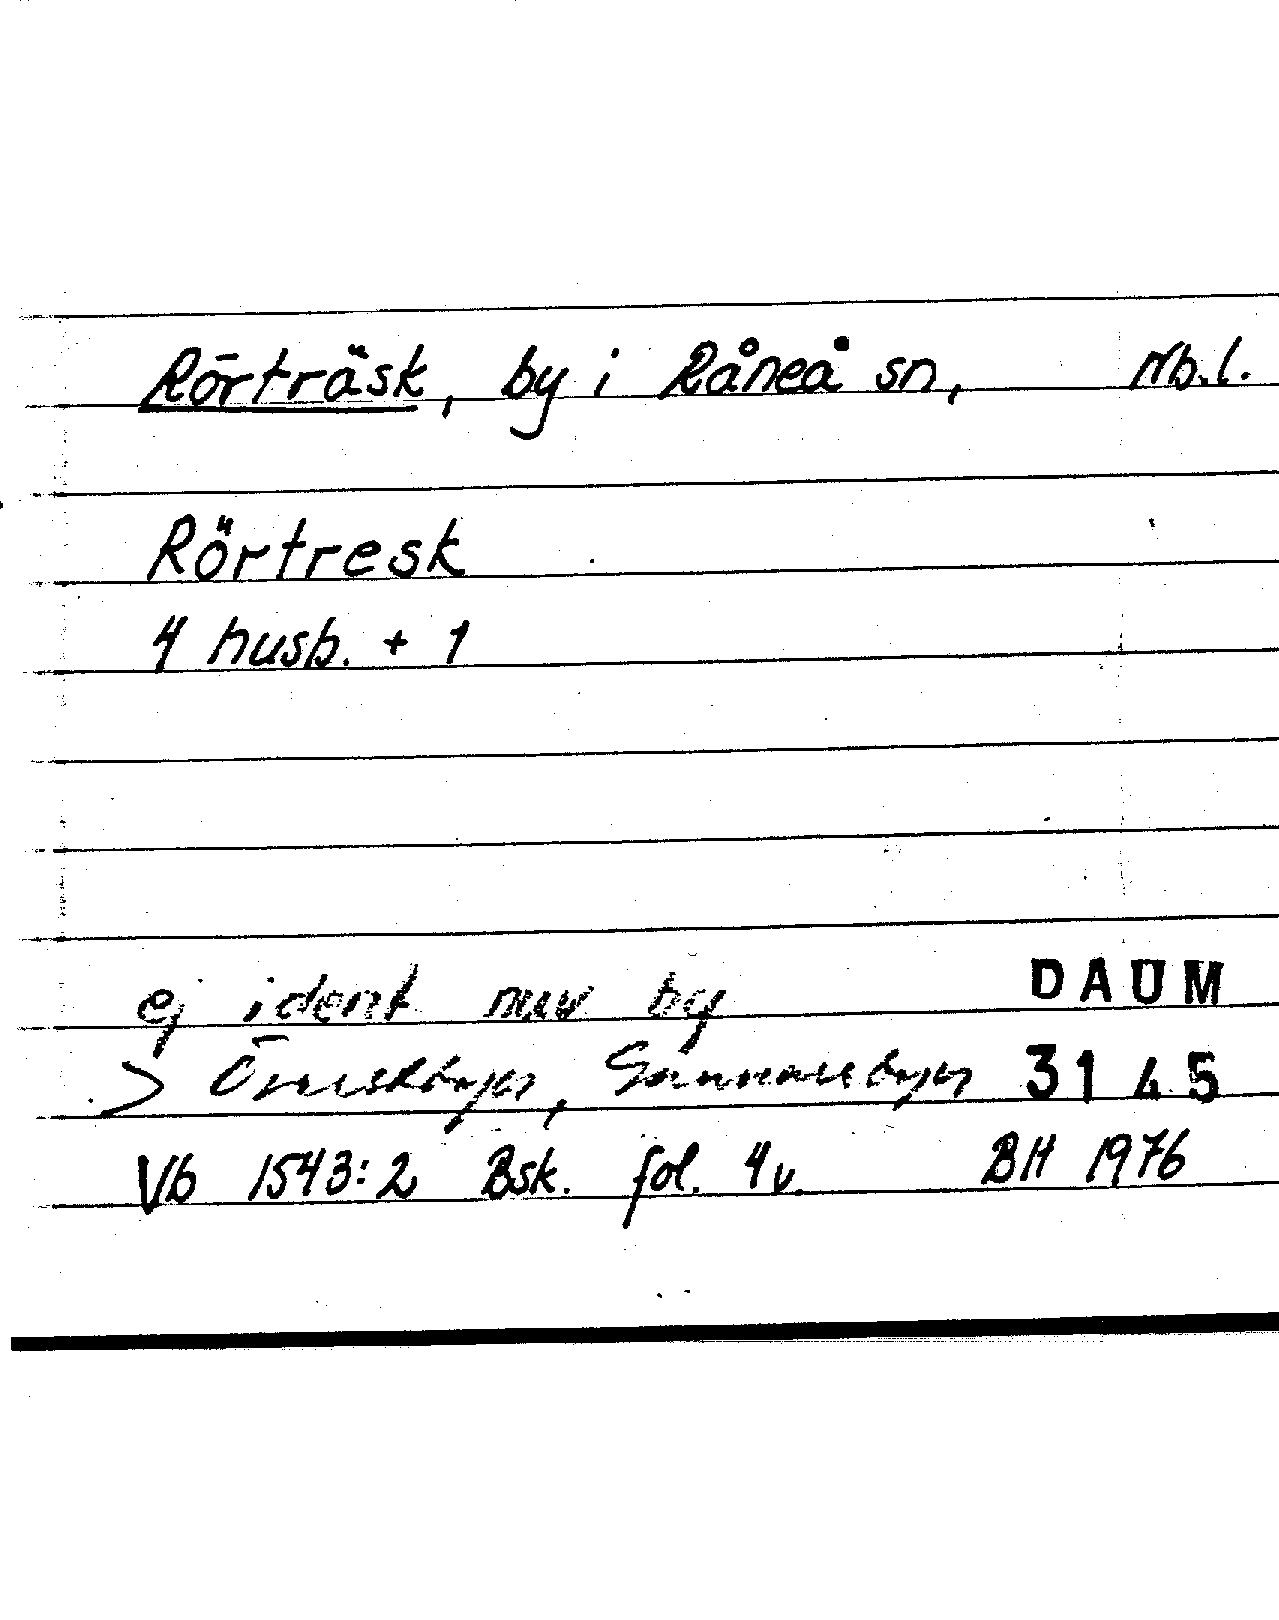 Rörträsk, by i Råneå sn, Nb.l.
Rörtresk
4 husb. + 1
ej ident nuv by
DAUM
> Örarsköyn, Gunnarsbyn 3145
Vb 1543:2 Bsk. fol. 4v. BH 1976